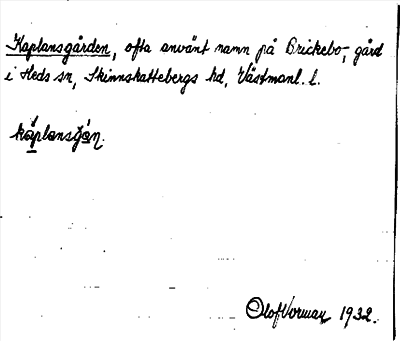 Kaplansgården, ofta använt namn på Brickebo-, gård
i Heds sn, Skinnskattebergs hd, Västmanl. l.
kaplansgån.
Olof Vorman 1932.